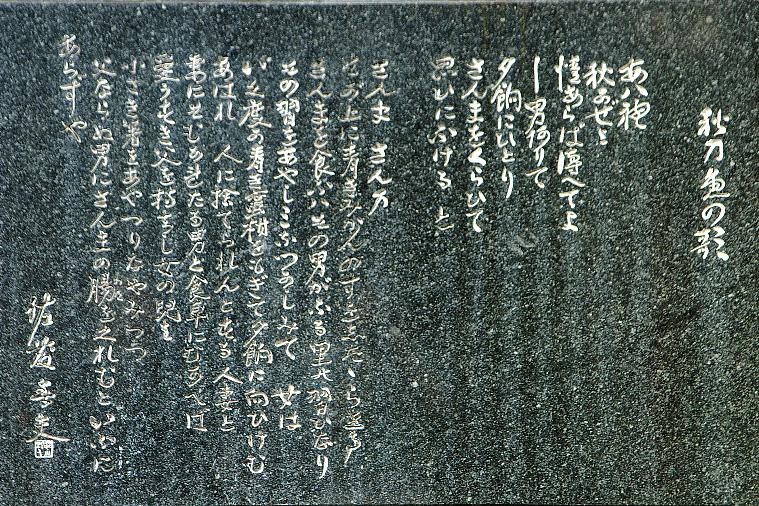 秋刀魚の歌
あハれ
秋かぜよ
情あらば傳へてよ
―男ありて
夕餉にひとり
さんまをくらひて
思ひにふける と
さんま さんま
そが上に青きみかんのすをしたゝらせて
さんまを食ふハその男がふる里の習ひなり
その習をあやしミなつかしみて 女は
いく度か青き蜜柑をもぎて夕餉に向ひけむ
あはれ 人に捨てられんとする人妻と
妻にそむかれたる男と食卓にむかへば
愛うすき父を持ちし女の児は
小さき箸をあやつりなやみつつ
父ならぬ男にさんまの腸をくれむといふに
あらずや
佐藤春夫